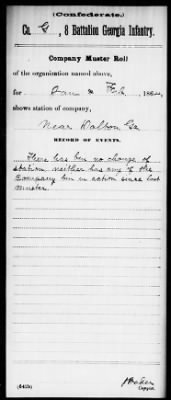 (Confederate.)
Co. G, 8 Battalion Georgia Infantry.
Company Muster Roll
of the organization named above,
for Jan & Feb, 1864,
shows station of company,
Near Dalton Ga
RECORD OF EVENTS.
There has ben no change of
station neither has any of the
Company ben in action since last
Muster.
(642b)
Copyist.